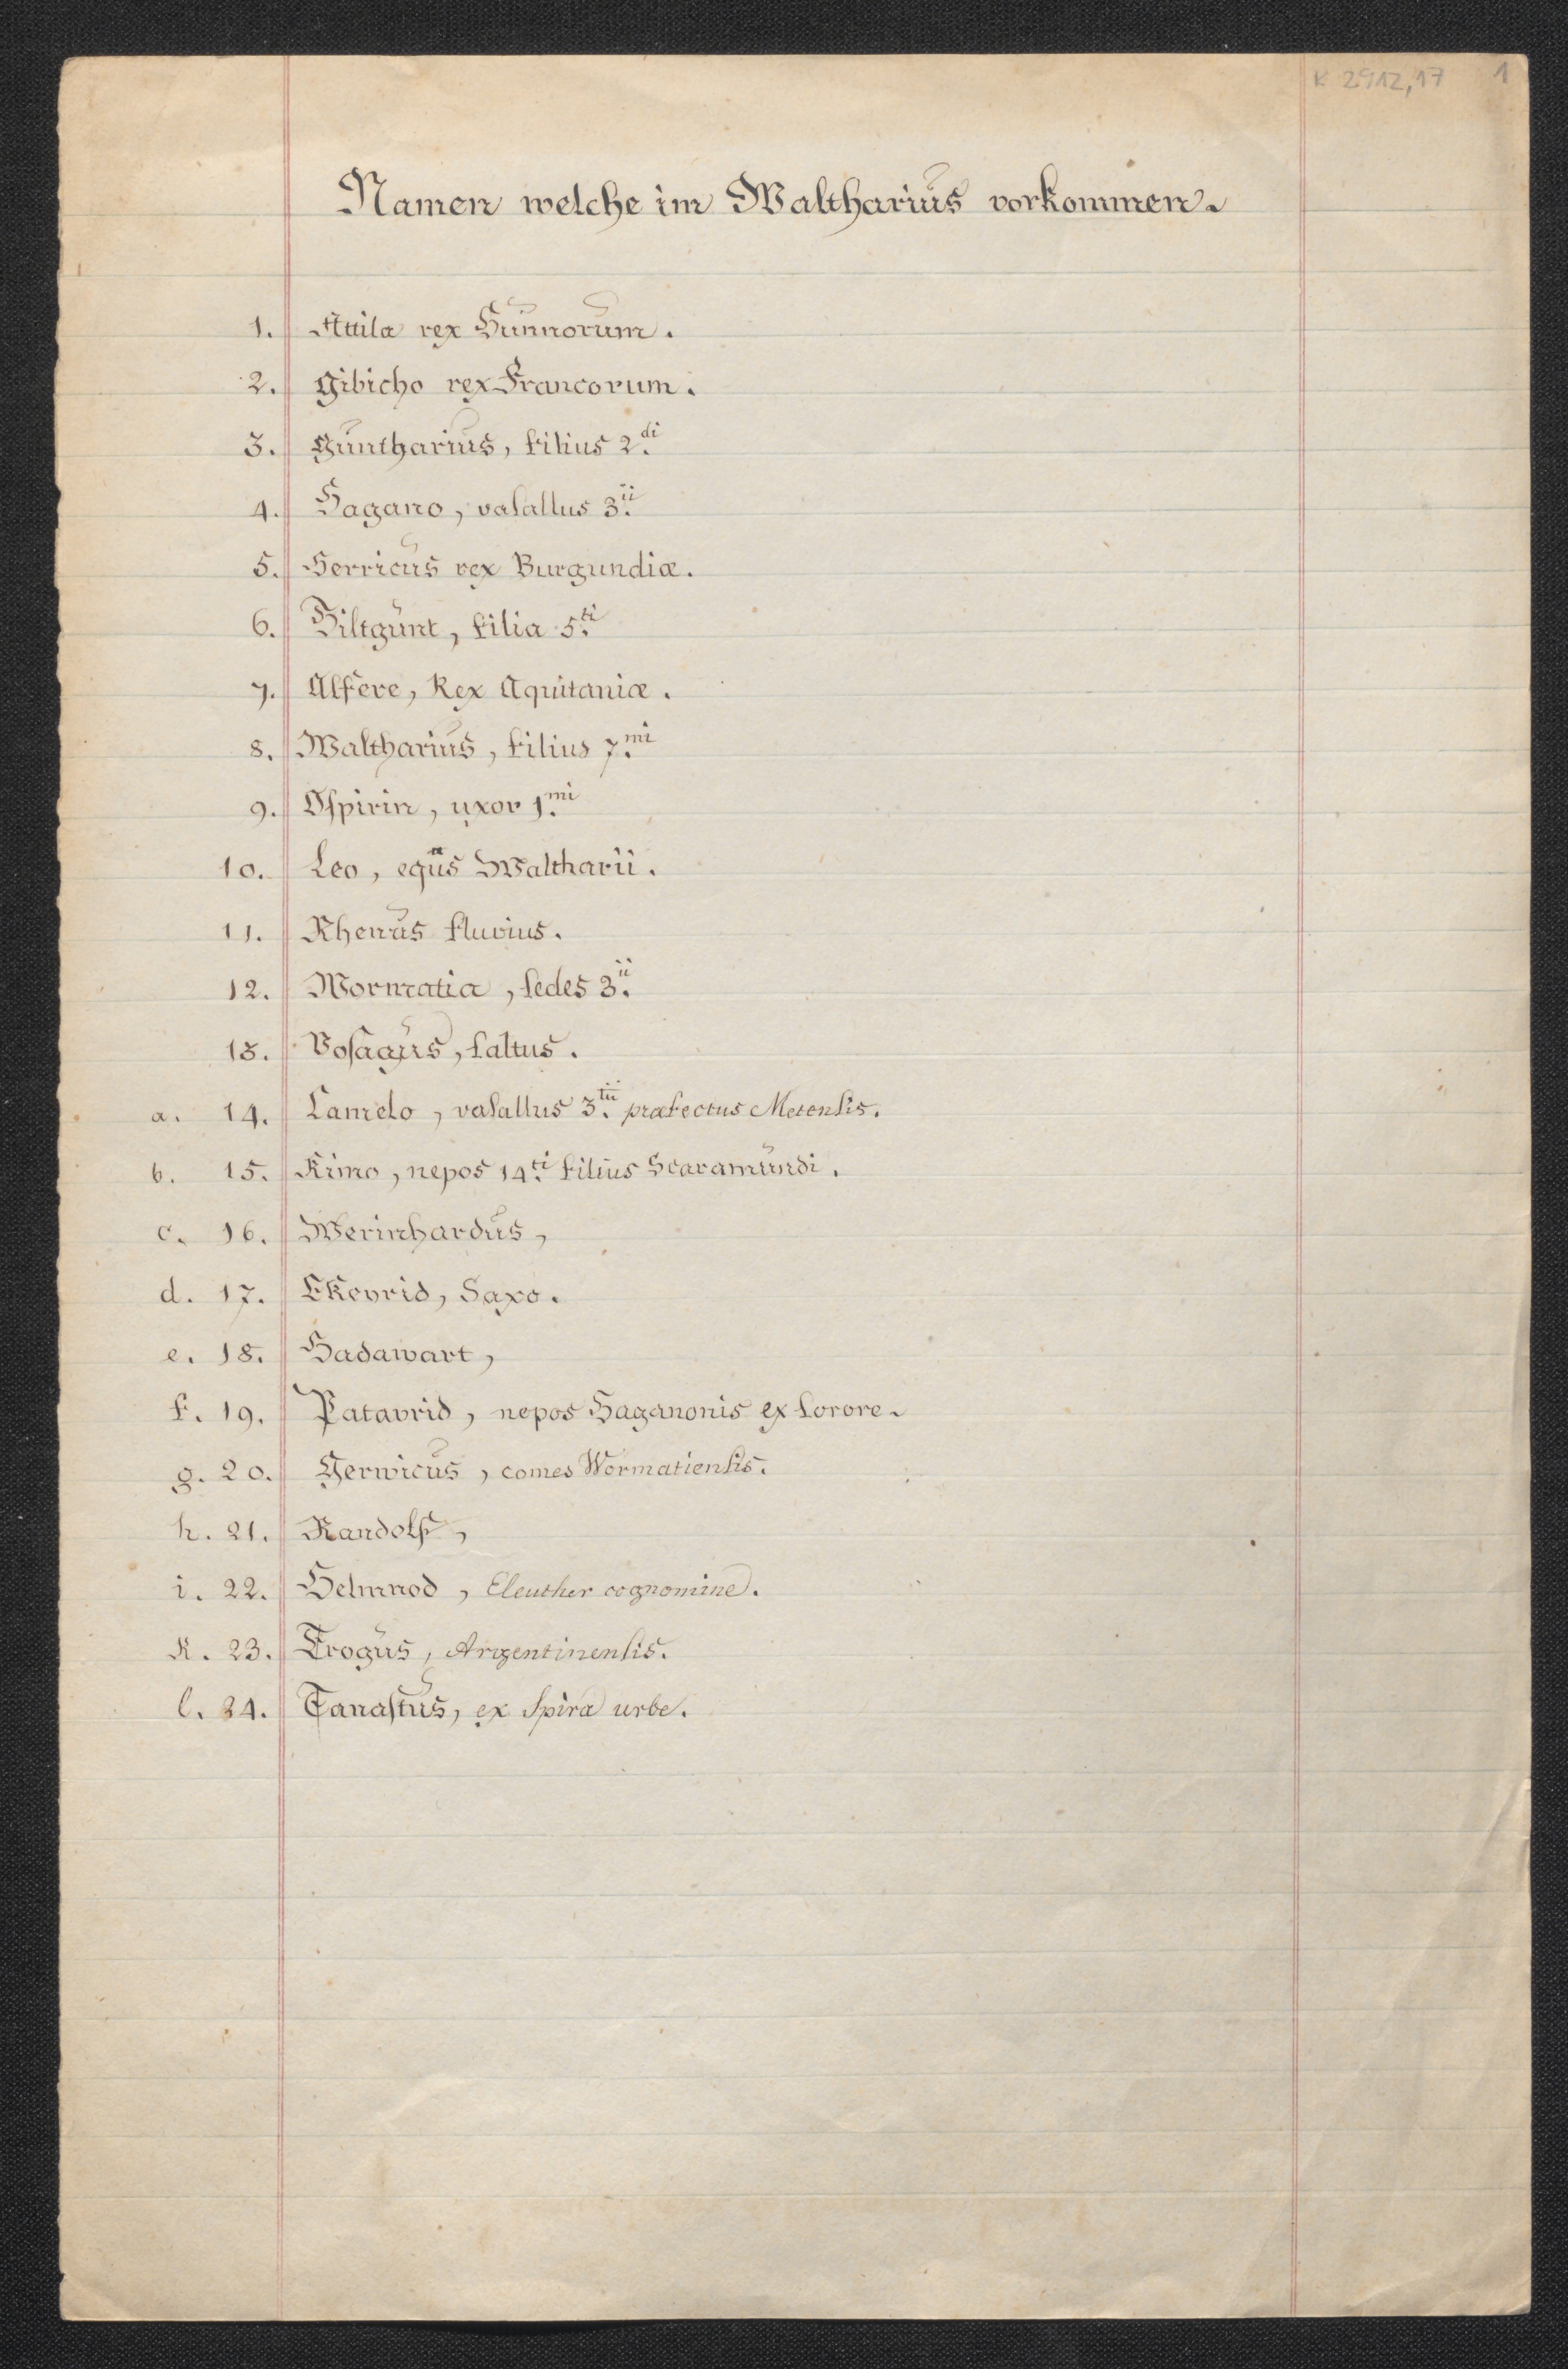 K 2912,17 1
Namen welche im Waltharius vorkommen.
1. Attila rex Hunnorum.
2. Gibicho rex Francorum.
3. Guntharius, filius 2.di
4. Hagano, vasallus 3.ii
5. Herricus rex Burgundiæ.
6. Hiltgunt, filia 5.ti
7. Alfere, Rex Aquitaniæ.
8. Waltharius, filius 7.mi
9. Ospirin, uxor 1.mi
10. Leo, equus Waltharii.
11. Rhenus fluvius.
12. Wormatia, sedes 3.ii
13. Vosagus, saltus.
a. 14. Camelo, vasallus 3.tii præfectus Metensis.
b. 15. Kimo, nepos 14.ti filius Scaramundi.
c. 16. Werinhardus,
d. 17. Ekevrid, Saxo.
e. 18. Hadawart,
f. 19. Patavrid, nepos Haganonis ex sorore.
g. 20. Gerwicus, comes Wormatiensis.
h. 21. Randolf,
i. 22. Helmnod, Eleuther cognomine.
k. 23. Trogus, Argentinensis.
l. 24. Tanastus, ex Spira urbe.